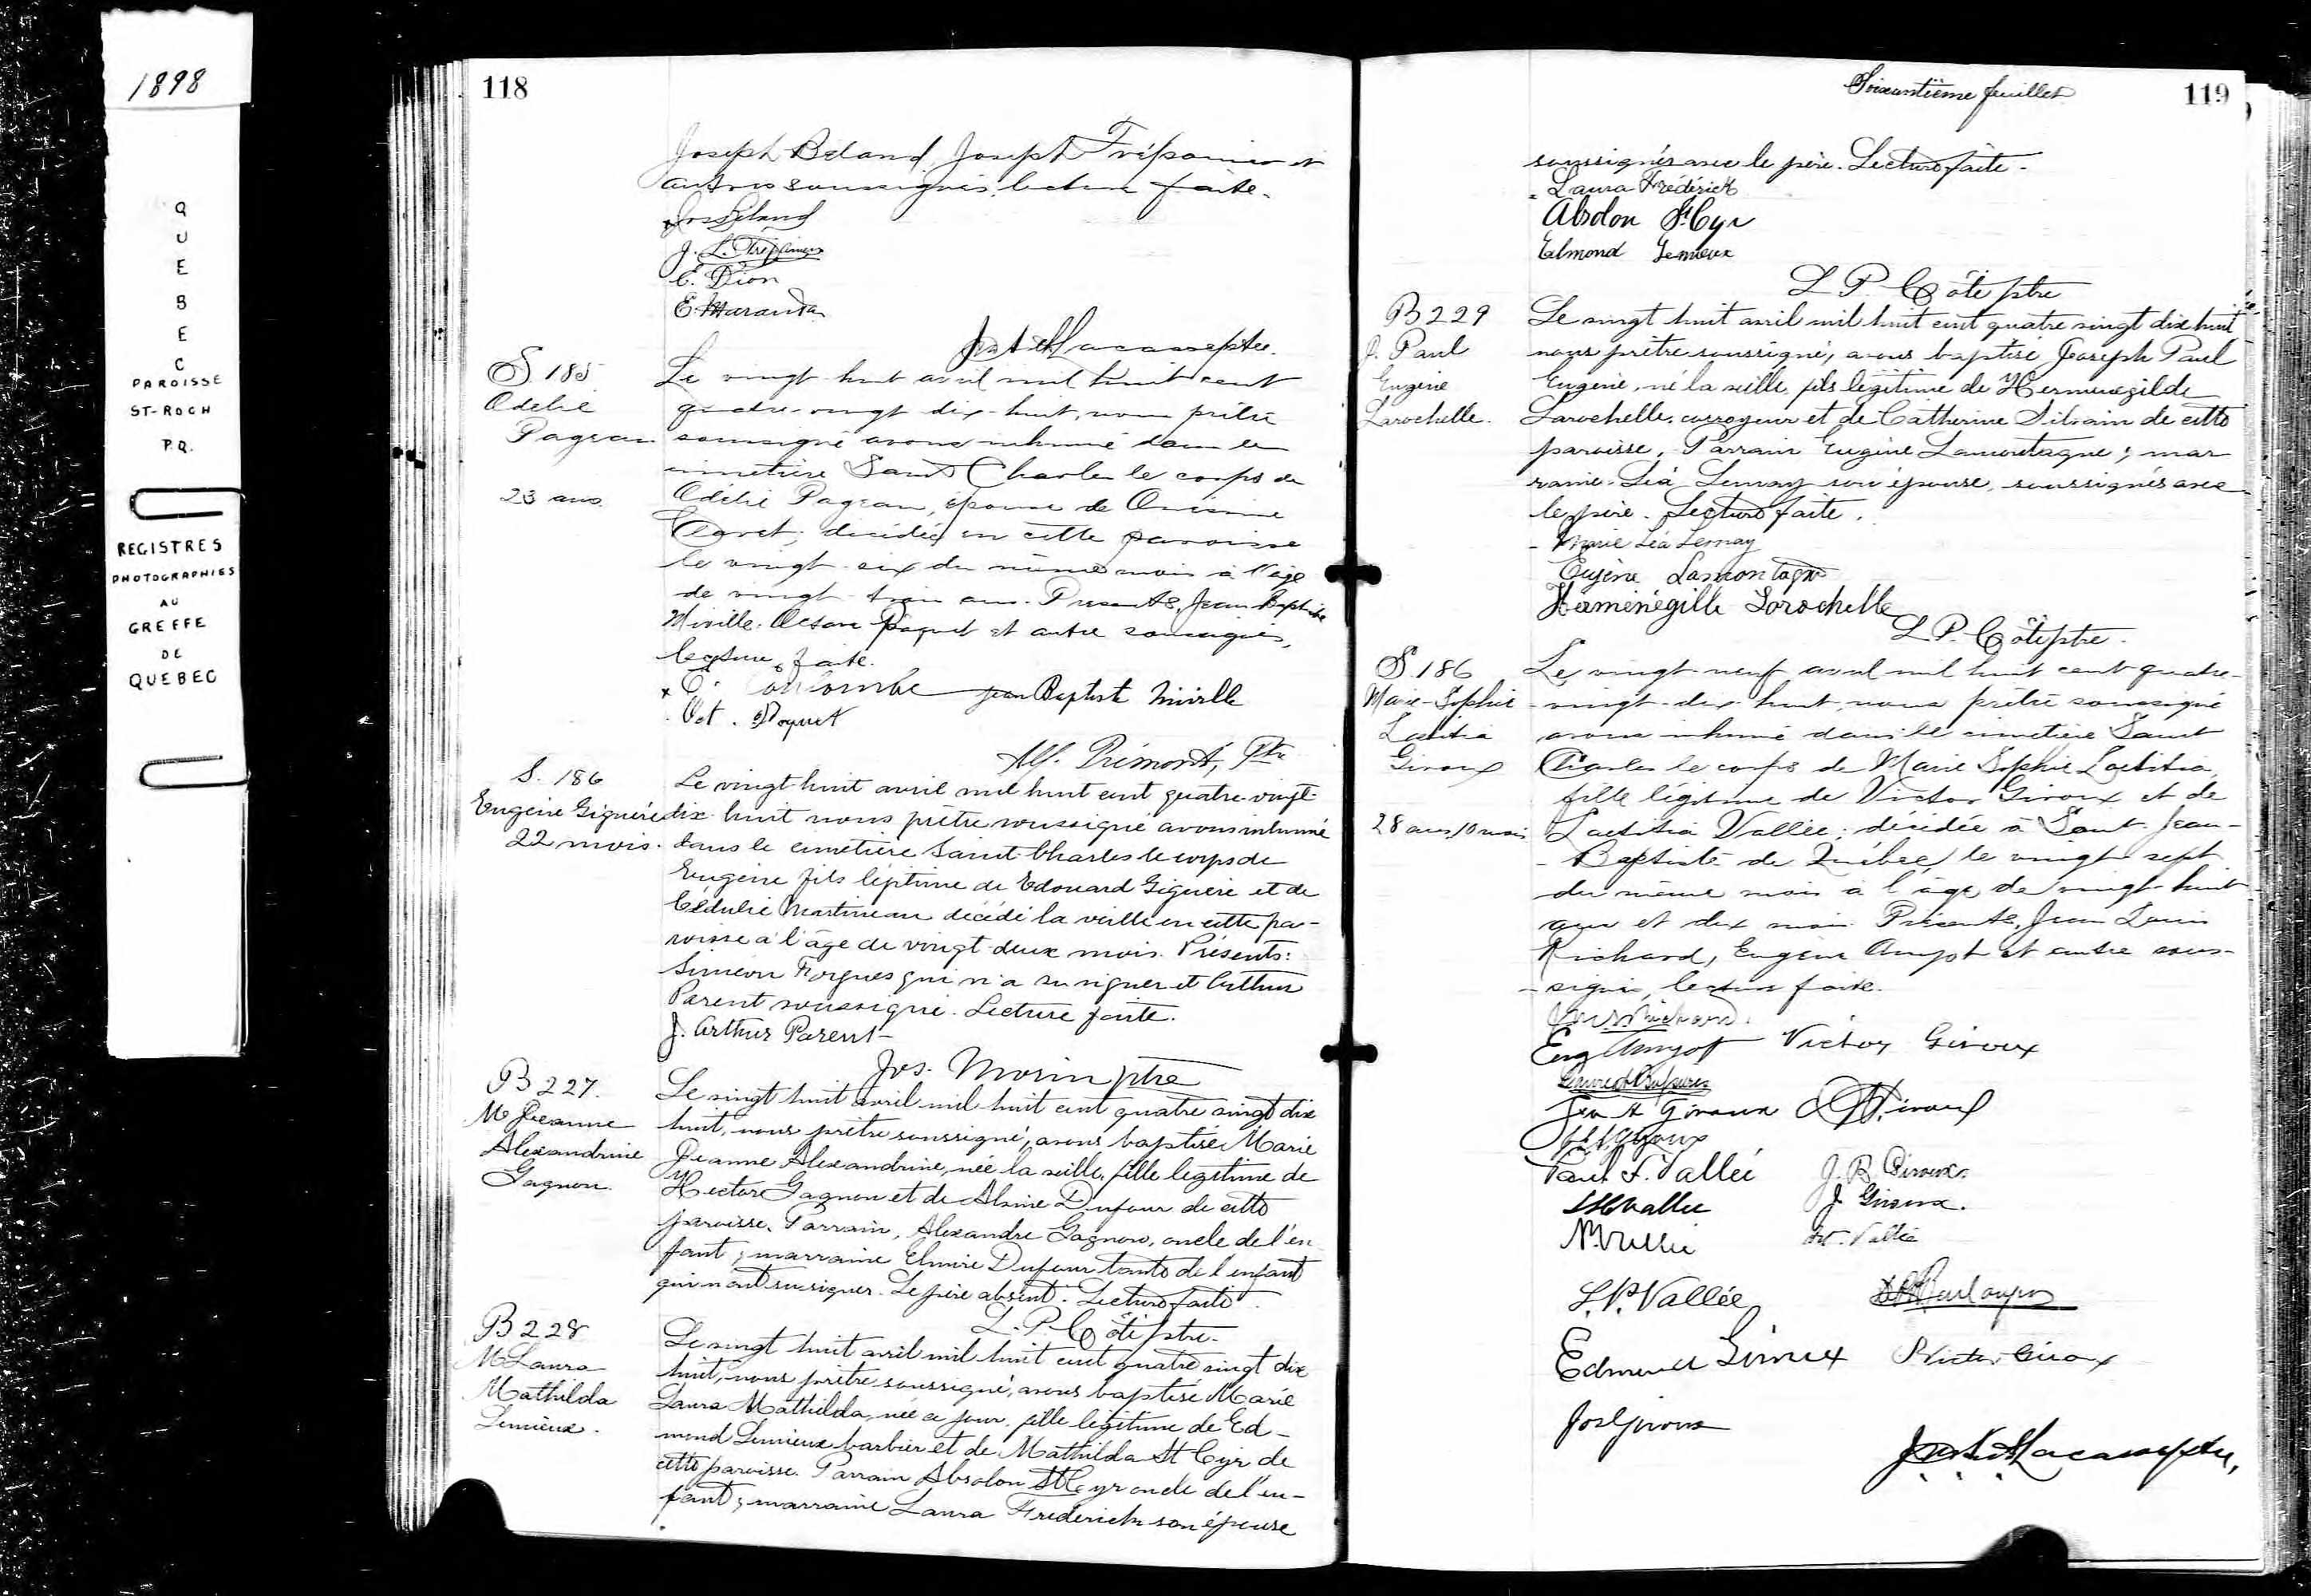 1898
QUEBEC
PAROISSE
ST-ROCH
P.Q.
REGISTRES
PHOTOGRAPHIES
AU
GREFFE
DE
QUEBEC
118
Joseph Béland, Joseph Trépanier et
autres soussignés, lecture faite.
Jos Béland
J. L. Trépanier
E. Dion
E. Maranda
ptre.
S 185
Odélie
Pageau
23 ans.
Le vingt huit avril mil huit cent
quatre-vingt dix-huit, nous prêtre
soussigné avons inhumé dans le
cimetière Saint Charles le corps de
Odélie Pageau, épouse de Onésime
décédée en cette paroisse
le vingt-six du même mois à l'âge
de vingt-trois ans. Présents, Jean Baptiste
Miville, Octave Paquet et autre soussignés,
lecture faite.
Jean Baptiste Miville
Oct. Paquet
Alf. Prémont, Ptre
S. 186
Eugène Giguère
22 mois.
Le vingt-huit avril mil huit cent quatre-vingt
dix-huit nous prêtre soussigné avons inhumé
dans le cimetière Saint-Charles le corps de
Eugène fils légitime de Edouard Giguère et de
Cédulie Martineau décédé la veille en cette pa-
roisse à l'âge de vingt-deux mois. Présents:
Siméon Forgues qui n'a su signer et Arthur
Parent soussigné. Lecture faite.
J. Arthur Parent
Jos. Morin ptre
B 227.
M Jeanne
Alexandrine
Gagnon.
Le vingt huit avril mil huit cent quatre vingt dix
huit, nous prêtre soussigné, avons baptisé Marie
Jeanne Alexandrine, née la veille, fille légitime de
Hector Gagnon et de Alvine Dufour de cette
paroisse. Parrain, Alexandre Gagnon, oncle de l'en
fant; marraine Elmire Dufour tante de l'enfant
qui n'ont su signer. Le père absent. Lecture faite.
L. P. Côté ptre.
B 228
M Laura
Mathilda
Lemieux.
Le vingt huit avril mil huit cent quatre vingt dix
huit, nous prêtre soussigné, avons baptisé Marie
Laura Mathilda, née ce jour, fille légitime de Ed-
mond Lemieux barbier et de Mathilda St Cyr de
cette paroisse. Parrain Absolon St Cyr oncle de l'en-
fant; marraine Laura Frederick son épouse
Soixantième feuillet
119
soussignés avec le père. Lecture faite.
Laura Frédérick
Absolon St Cyr
Edmond Lemieux
L P. Côté ptre
B 229
J. Paul
Eugène
Larochelle.
Le vingt huit avril mil huit cent quatre vingt dix huit
nous prêtre soussigné, avons baptisé Joseph Paul
Eugène, né la veille, fils légitime de Hermenegilde
Larochelle, corroyeur et de Catherine Silvain de cette
paroisse. Parrain Eugène Lamontagne; mar
raine Léa Lemay son épouse, soussignés avec
le père. Lecture faite.
Marie Léa Lemay
Eugène Lamontagne
Herménégille Larochelle
L. P. Côté ptre.
S. 186
Marie-Sophie
Laetitia
Giroux
28 ans 10 mois
Le vingt-neuf avril mil huit cent quatre-
vingt-dix-huit, nous prêtre soussigné
avons inhumé dans le cimetière Saint
Charles le corps de Marie Sophie Laetitia
fille légitime de Victor Giroux et de
Laetitia Vallée; décédée à Saint-Jean-
Baptiste de Québec, le vingt-sept
du même mois à l'âge de vingt-huit
ans et dix mois. Présents, Jean Louis
Richard, Eugène Amyot et autre sous-
signés, lecture faite.
Eug Amyot
Victor Giroux
Giroux
Paul F. Vallée
J. B. Giroux.
J. Giroux.
Vallée
L. P. Vallée
Edmond Giroux
Victor Giroux
Jos Giroux
ptre,